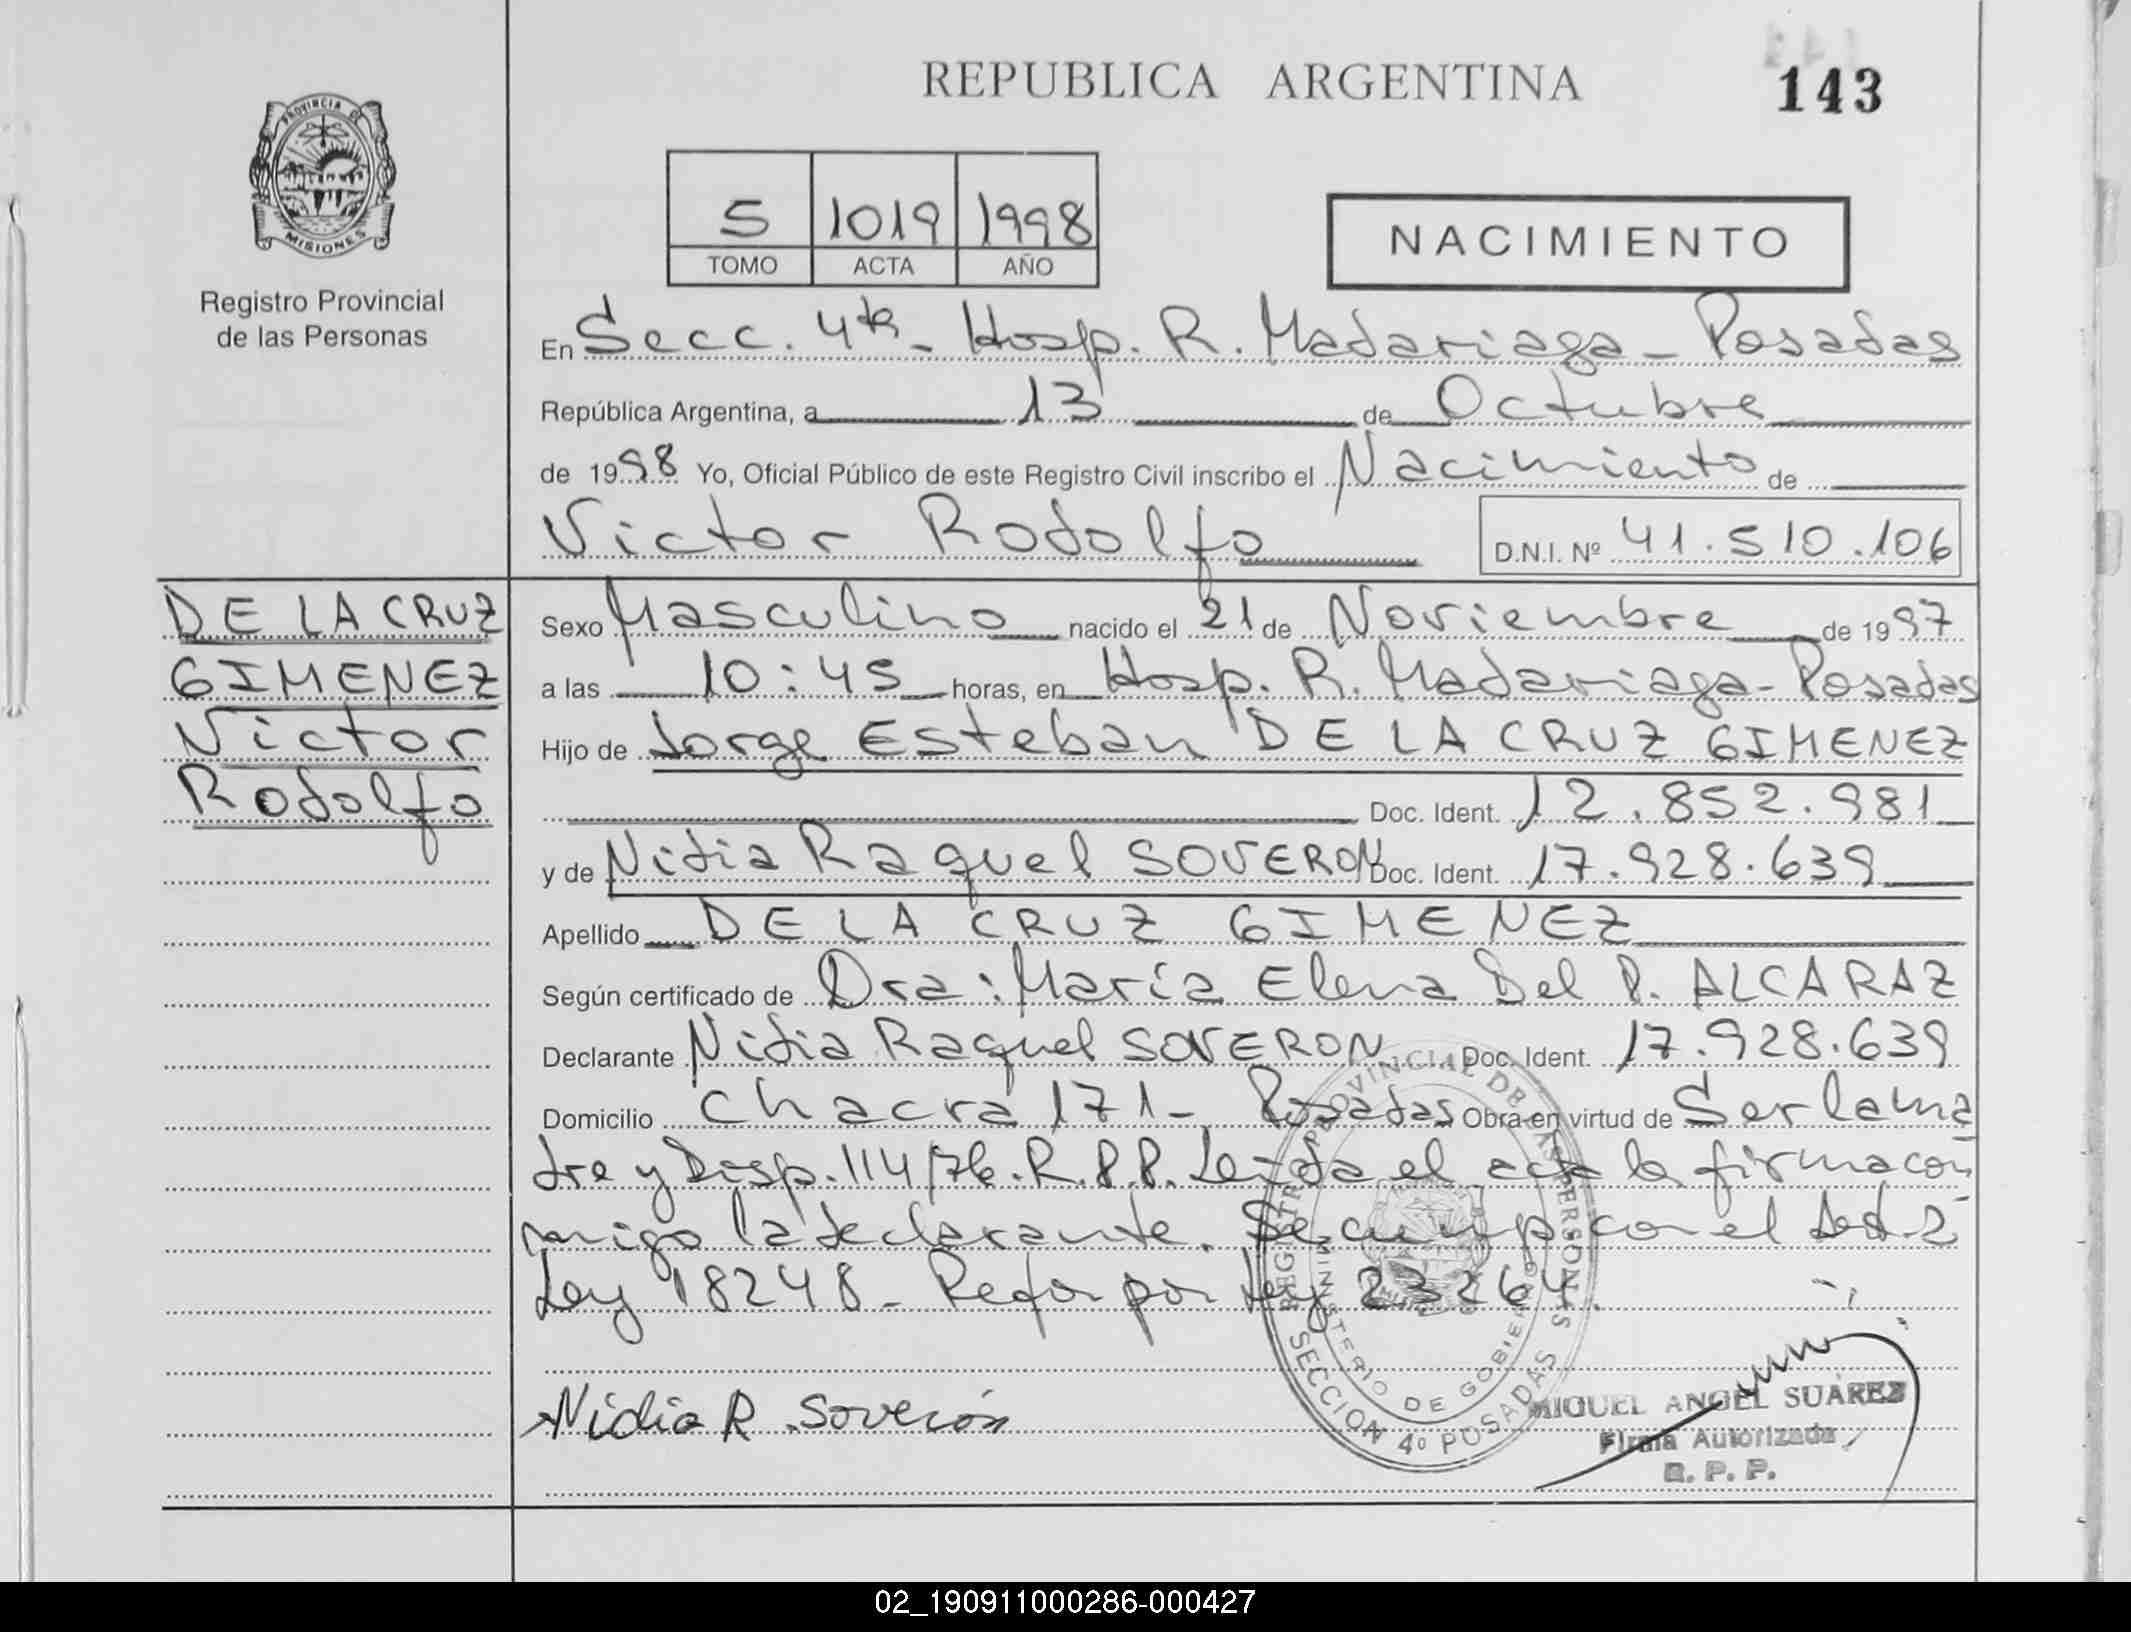 REPUBLICA ARGENTINA
143
PROVINCIA DE
MISIONES
Registro Provincial
de las Personas
5 1019 1998
TOMO ACTA AÑO
NACIMIENTO
En Secc. 4ta - Hosp. R. Madariaga - Posadas
República Argentina, a 13 de Octubre
de 1998 Yo, Oficial Público de este Registro Civil inscribo el Nacimiento de
Victor Rodolfo D.N.I. Nº 41.510.106
DE LA CRUZ
GIMENEZ
Victor
Rodolfo
Sexo Masculino nacido el 21 de Noviembre de 1997
a las 10:45 horas, en Hosp. R. Madariaga - Posadas
Hijo de Jorge Esteban DE LA CRUZ GIMENEZ
Doc. Ident. 12.852.981
y de Nidia Raquel SOVERON Doc. Ident. 17.928.639
Apellido DE LA CRUZ GIMENEZ
Según certificado de Dra: María Elena Del P. ALCARAZ
Declarante Nidia Raquel SOVERON Doc. Ident. 17.928.639
Domicilio Chacra 171 - Posadas Obra en virtud de Ser la ma
dre y Disp. 114/76. R.P.P. Leída el acta la firma con
migo la declarante. Se cump con el Art 2
Ley 18248 - Refor por Ley 23264.
Nidia R. Soverón
REGISTRO PROVINCIAL DE LAS PERSONAS
MINISTERIO DE GOBIERNO
SECCION 4º POSADAS
MIGUEL ANGEL SUÁREZ
Firma Autorizada
R. P. P.
02_190911000286-000427